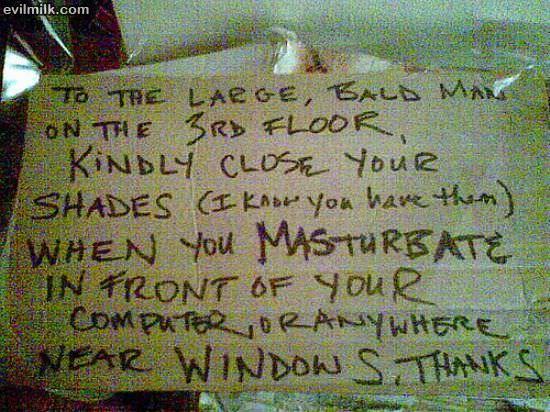 evilmilk.com
TO THE LARGE, BALD MAN
ON THE 3RD FLOOR,
KINDLY CLOSE YOUR
SHADES (I KNOW YOU have them)
WHEN YOU MASTURBATE
IN FRONT OF YOUR
COMPUTER, OR ANYWHERE
NEAR WINDOWS, THANKS